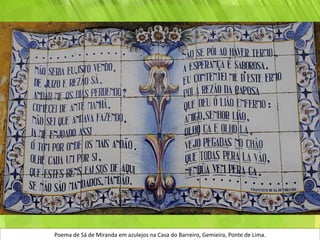 NÃO SERIA EU, ISTO VENDO,
DE JUIZO E REZÃO SÃ,
ANDAR-ME OS DIAS PERDENDO?
COMECEI DE ANTE MANHÃ,
NÃO SEI QUE ANDAVA FAZENDO,
JA ME ENJOADO ASSI
Ó TOM POR ONDE OS MAIS ANDÃO.
OLHE CADA UM POR SI.
QUE ESTES BENS FALSOS DE AQUI
SE NÃO SÃO MANDADOS, MANDÃO.
NÃO SE PÓI AO HAVER TERMO.
A ESPERANÇA É SABOROSA.
EU CONTENTEI ME D'ESTE ERMO
POLA REZÃO DA RAPOSA
QUE DEU Ó LIÃO ENFERMO:
AMIGO, SENHOR LIÃO,
OLHO CÁ E OLHO LÁ,
VEJO PEGADAS NO CHÃO
QUE TODAS PERA LÁ VÃO,
NENHŨA VEM PERA CÁ.
Poema de Sá de Miranda em azulejos na Casa do Barreiro, Gemieira, Ponte de Lima.